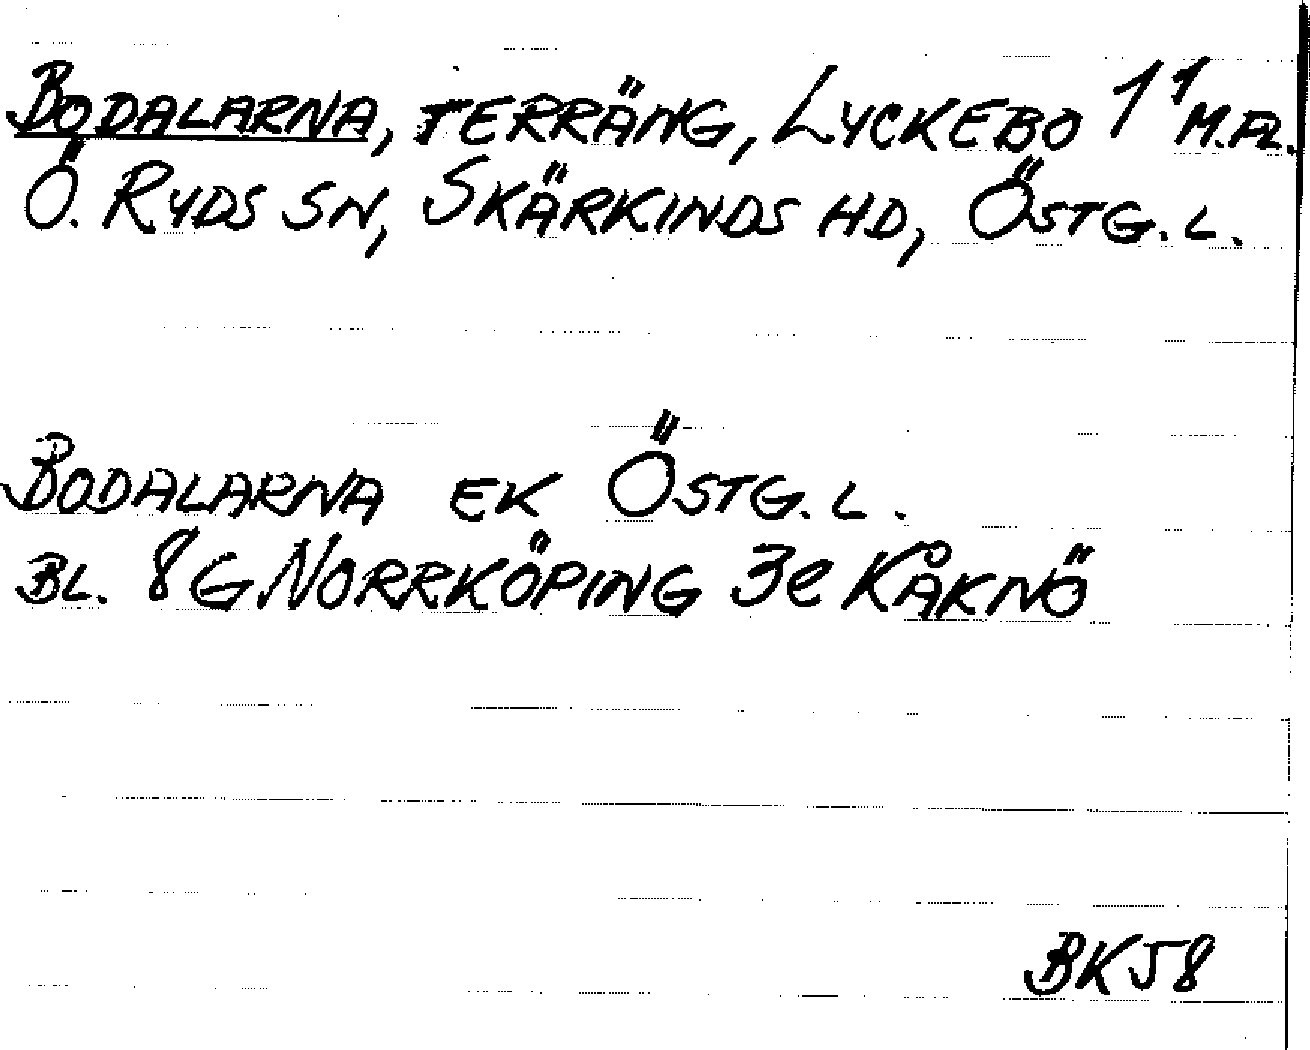 BODALARNA, TERRÄNG, LYCKEBO 1¹ M.FL.
Ö. RYDS SN, SKÄRKINDS HD, ÖSTG. L.
BODALARNA EK ÖSTG. L.
BL. 8G NORRKÖPING 3e KÅKNÖ
BK58